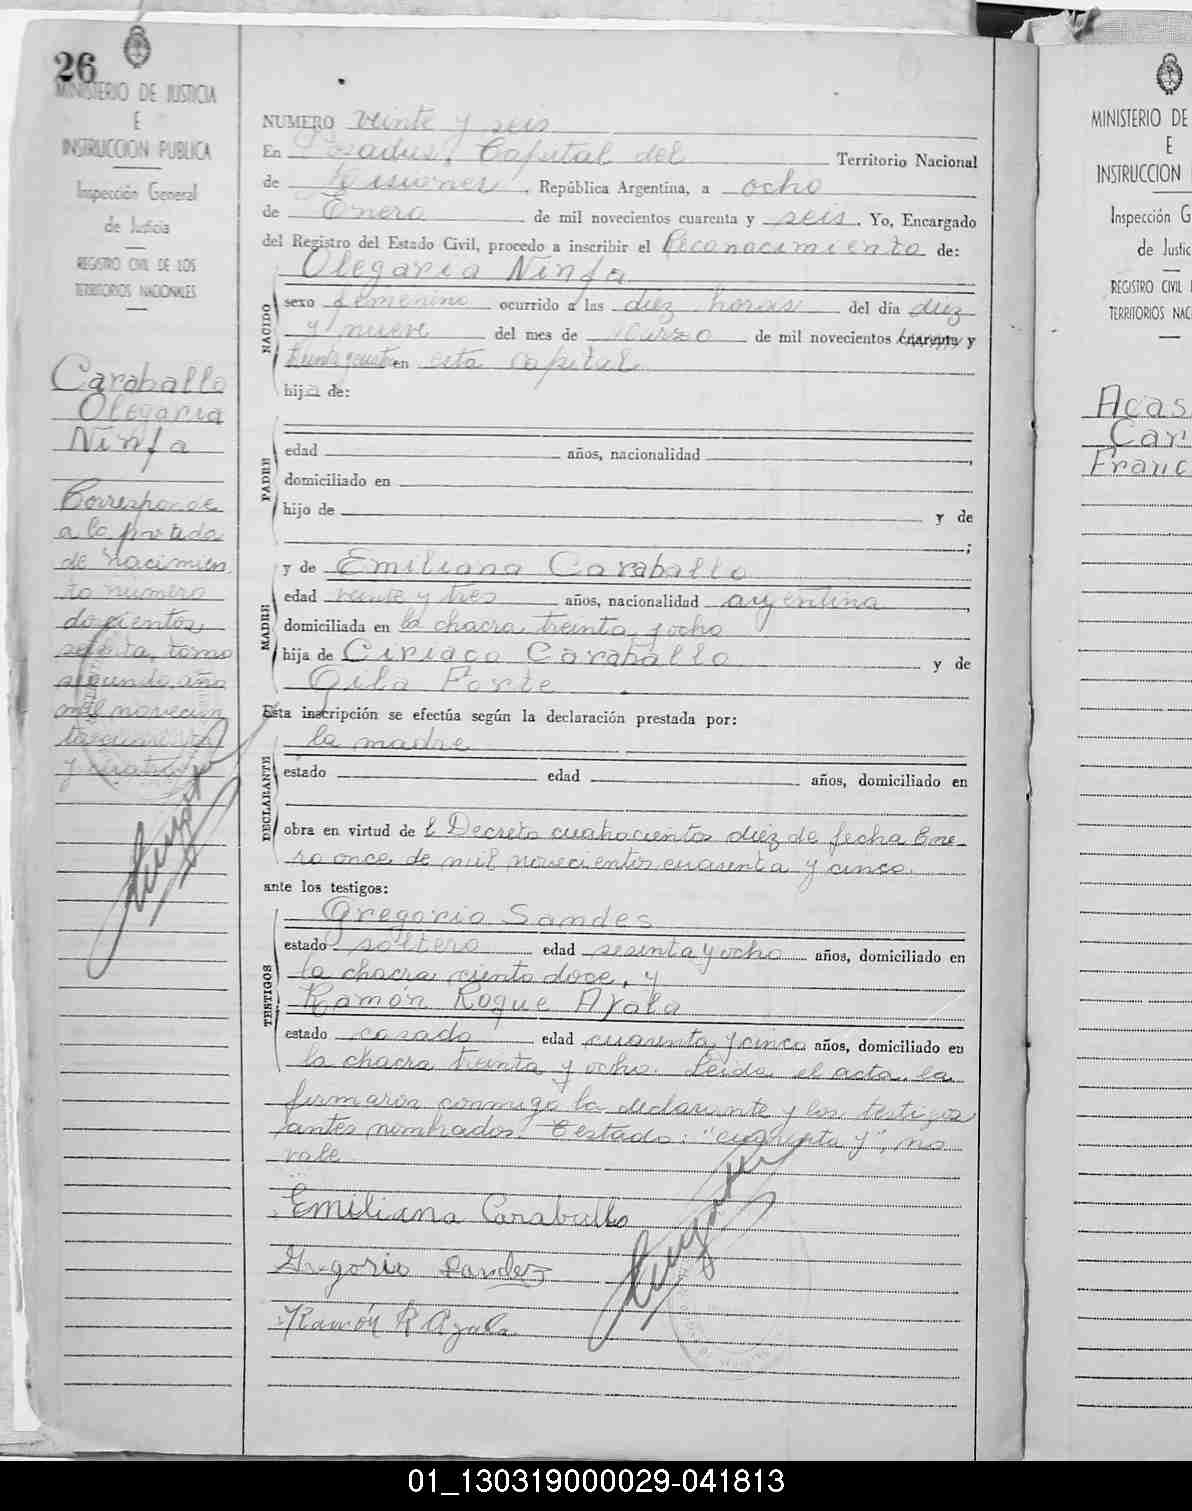 26
MINISTERIO DE JUSTICIA
E
INSTRUCCION PUBLICA
Inspección General
de Justicia
REGISTRO CIVIL DE LOS
TERRITORIOS NACIONALES
Caraballo
Olegaria
Ninfa
Corresponde
a la partida
de nacimien
to número
doscientos
tomo
segundo, año
mil novecien
NUMERO veinte y seis
En Posadas, Capital del Territorio Nacional
de Misiones, República Argentina, a ocho
de Enero de mil novecientos cuarenta y seis. Yo, Encargado
del Registro del Estado Civil, procedo a inscribir el Reconocimiento de:
Olegaria Ninfa
NACIDO
sexo femenino ocurrido a las diez horas del día diez
y nueve del mes de Marzo de mil novecientos cuarenta y
en esta capital
hija de:
PADRE
edad años, nacionalidad ,
domiciliado en
hijo de y de
;
MADRE
y de Emiliana Caraballo
edad veinte y tres años, nacionalidad argentina ,
domiciliada en la chacra treinta y ocho
hija de Ciriaco Caraballo y de
Gila Forte
Esta inscripción se efectúa según la declaración prestada por:
DECLARANTE
la madre
estado edad años, domiciliado en
obra en virtud de l Decreto cuatrocientos diez de fecha Ene-
ro once de mil novecientos cuarenta y cinco.
ante los testigos:
TESTIGOS
Gregorio Sandes
estado soltero edad sesenta y ocho años, domiciliado en
la chacra ciento doce, y
Ramón Roque Ayala
estado casado edad cuarenta y cinco años, domiciliado en
la chacra treinta y ocho. Leida el acta, la
firmaron conmigo la declarante y los testigos
antes nombrados. Testado: "cuarenta y", no
vale
Emiliana Caraballo
Gregorio Sandez
Ramón R Ayala
MINISTERIO DE
E
INSTRUCCION
Inspección G
de Justic
REGISTRO CIVIL
TERRITORIOS NAC
Acas
Car
Franc
01_130319000029-041813